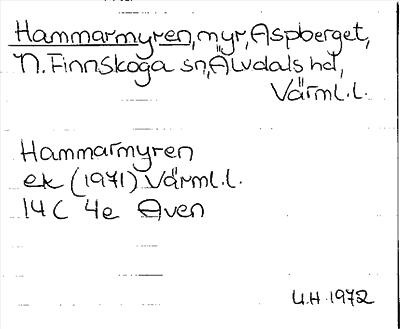 Hammarmyren, myr, Aspberget,
N. Finnskoga sn, Älvdals hd,
Värml.l.
Hammarmyren
ek (1971) Värml.l.
14C 4e Aven
U.H. 1972